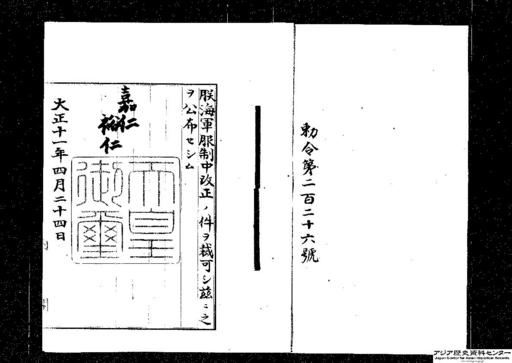 勅令第二百二十六號
朕海軍服制中改正ノ件ヲ裁可シ茲ニ之
ヲ公布セシム
嘉仁
裕仁
天皇
御璽
大正十一年四月二十四日
アジア歴史資料センター
Japan Center for Asian Historical Records